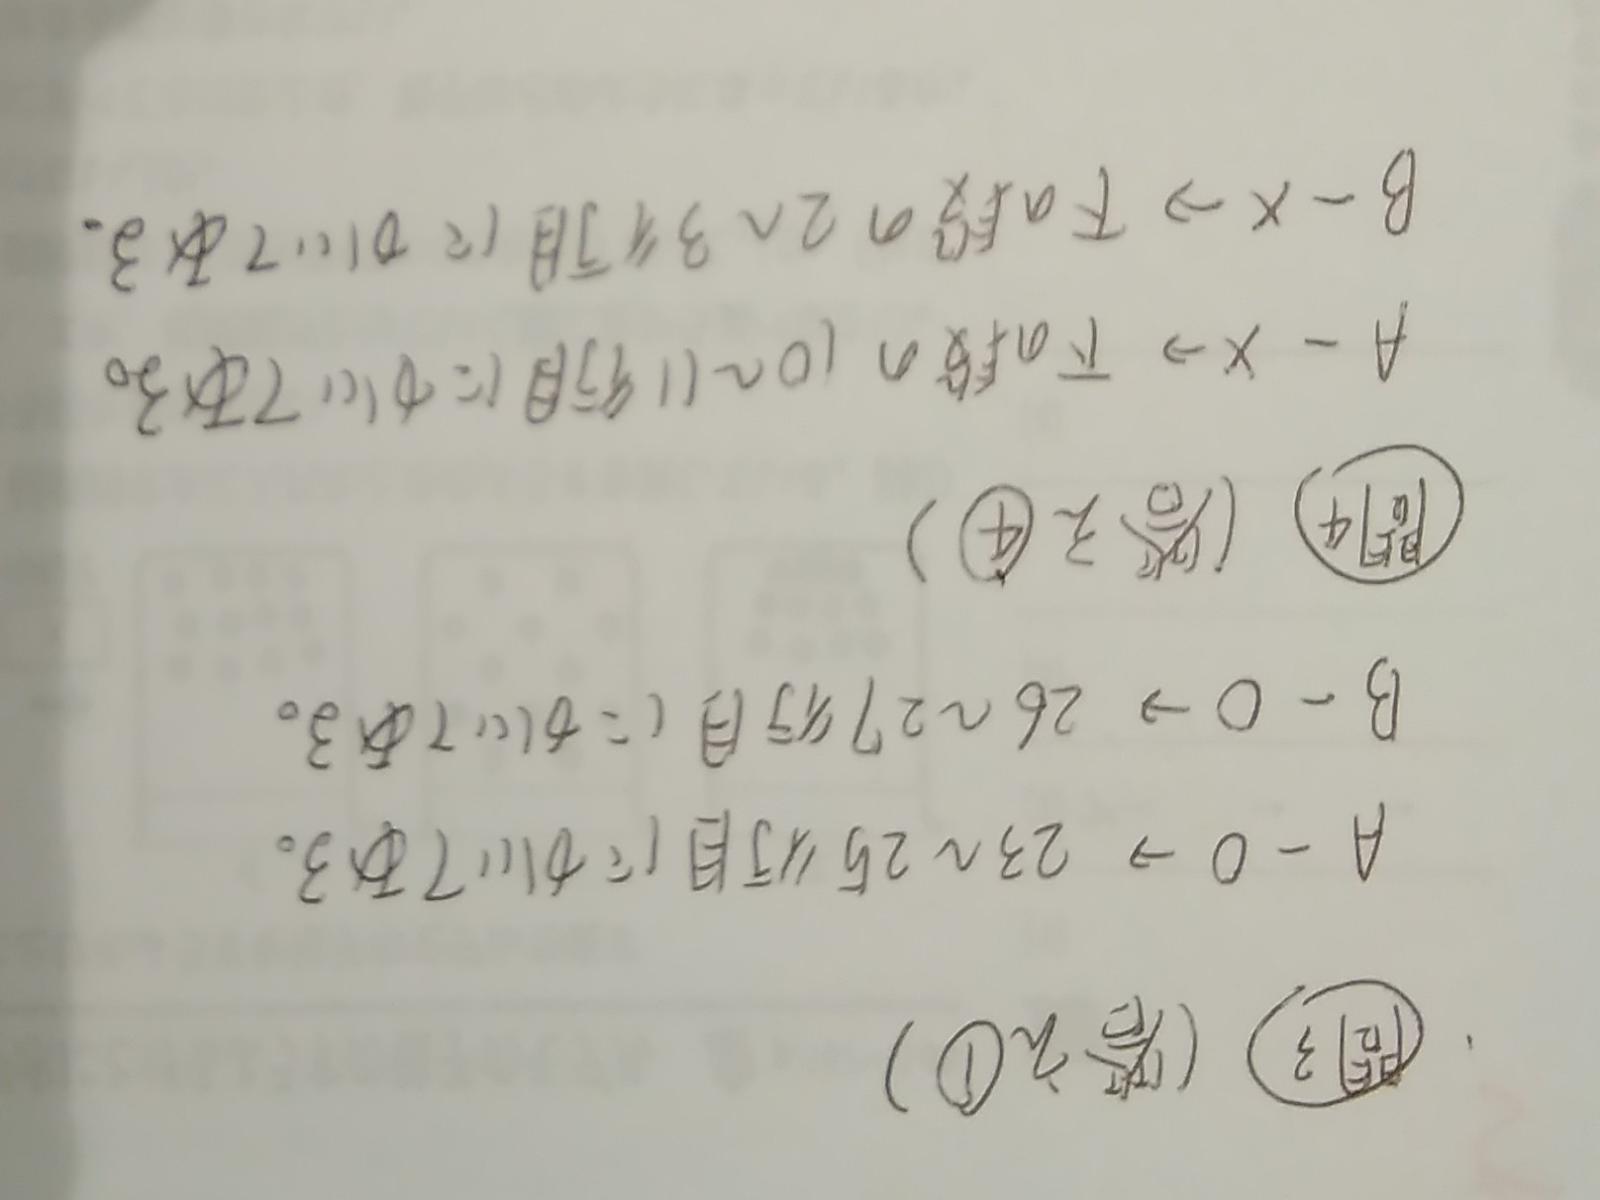 問3 (答え①)
A - O → 23~25行目にかいてある。
B - O → 26~27行目にかいてある。
問4 (答え④)
A - X → 下の段の10~11行目にかいてある。
B - X → 下の段の2~3行目にかいてある。